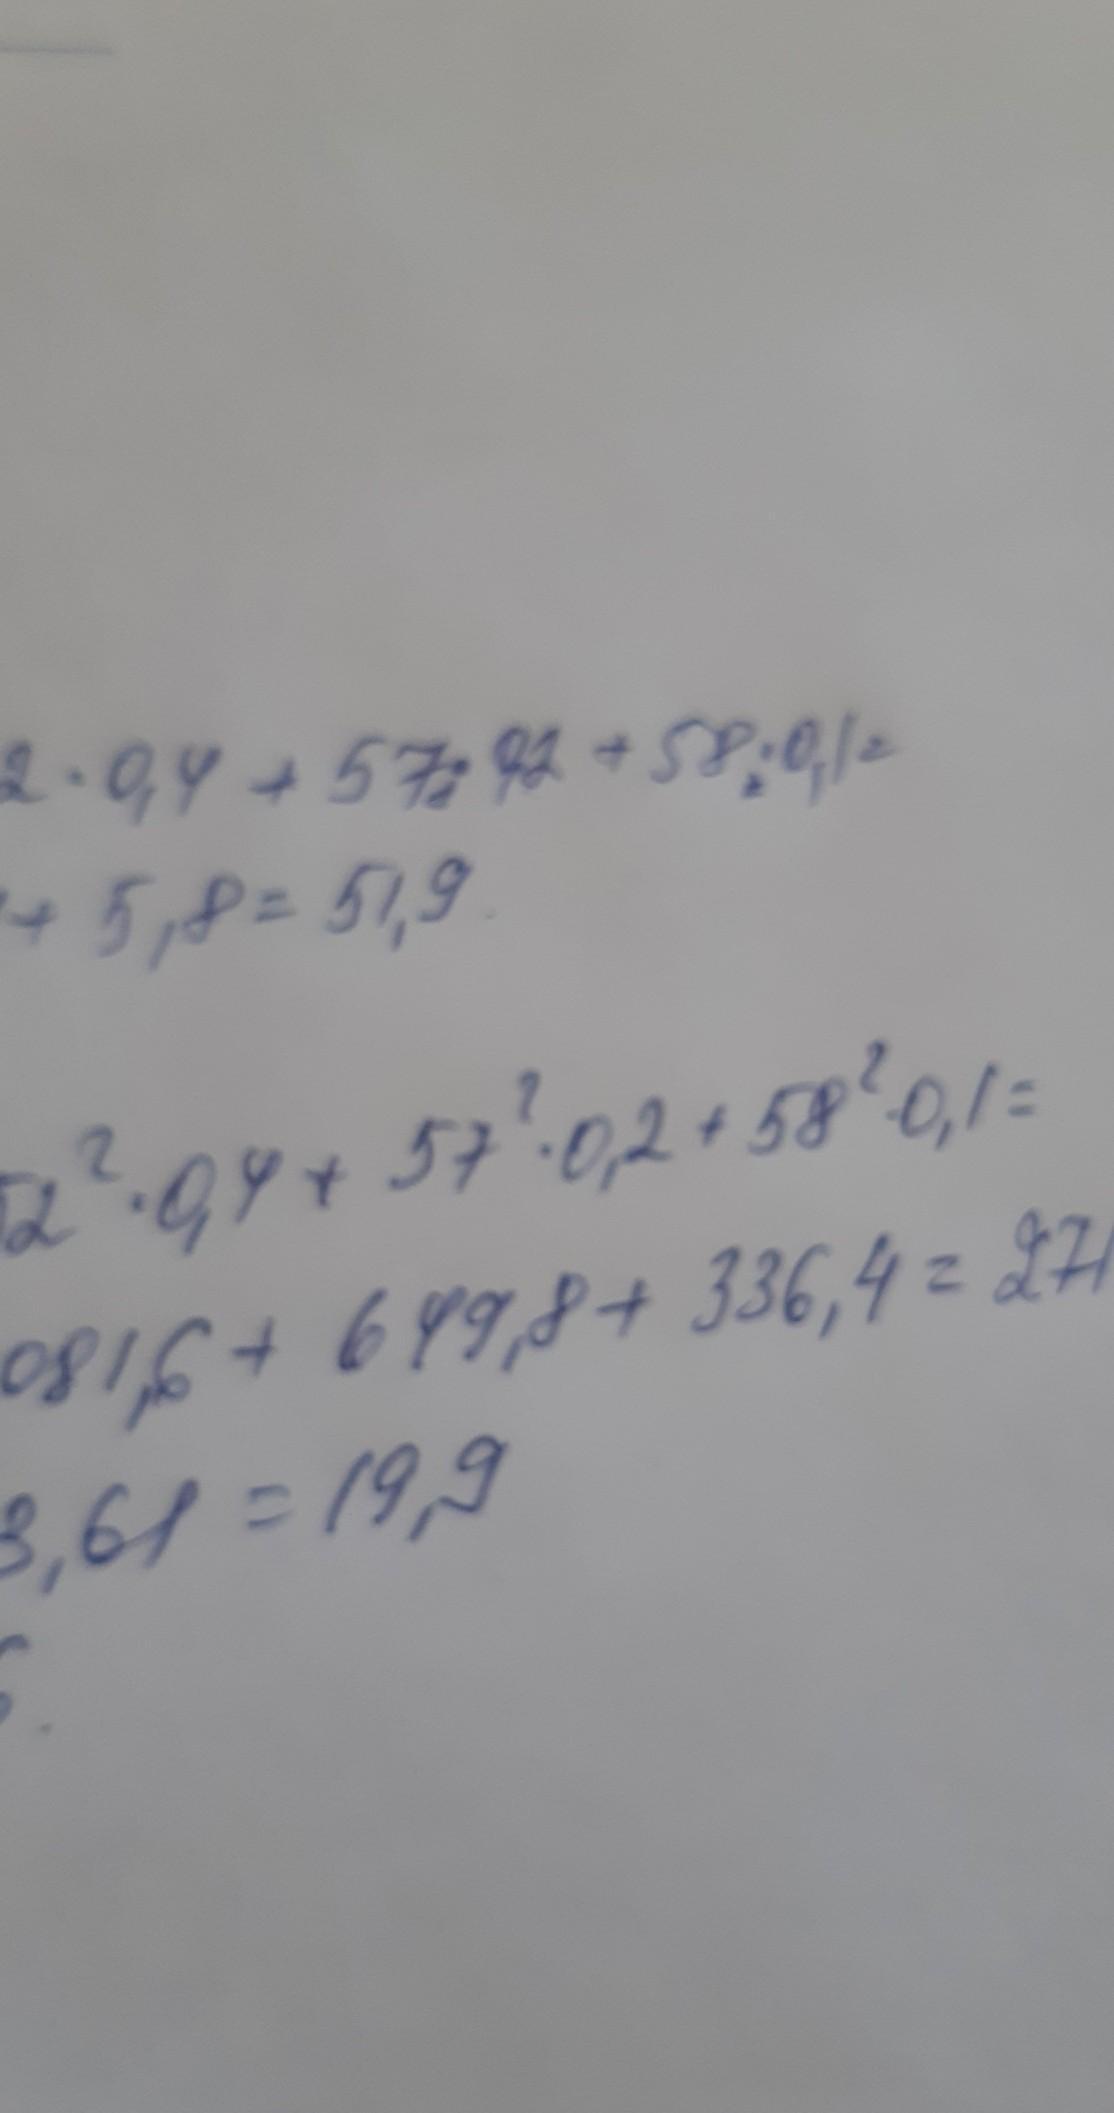 2 · 0,4 + 57 · 0,2 + 58 · 0,1 =
+ 5,8 = 51,9
52² · 0,4 + 57² · 0,2 + 58² · 0,1 =
081,6 + 649,8 + 336,4 = 271
3,61 = 19,9